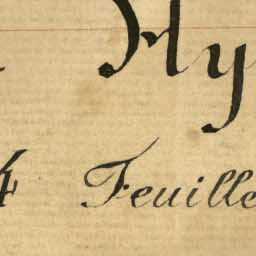 Hy
4 Feuille